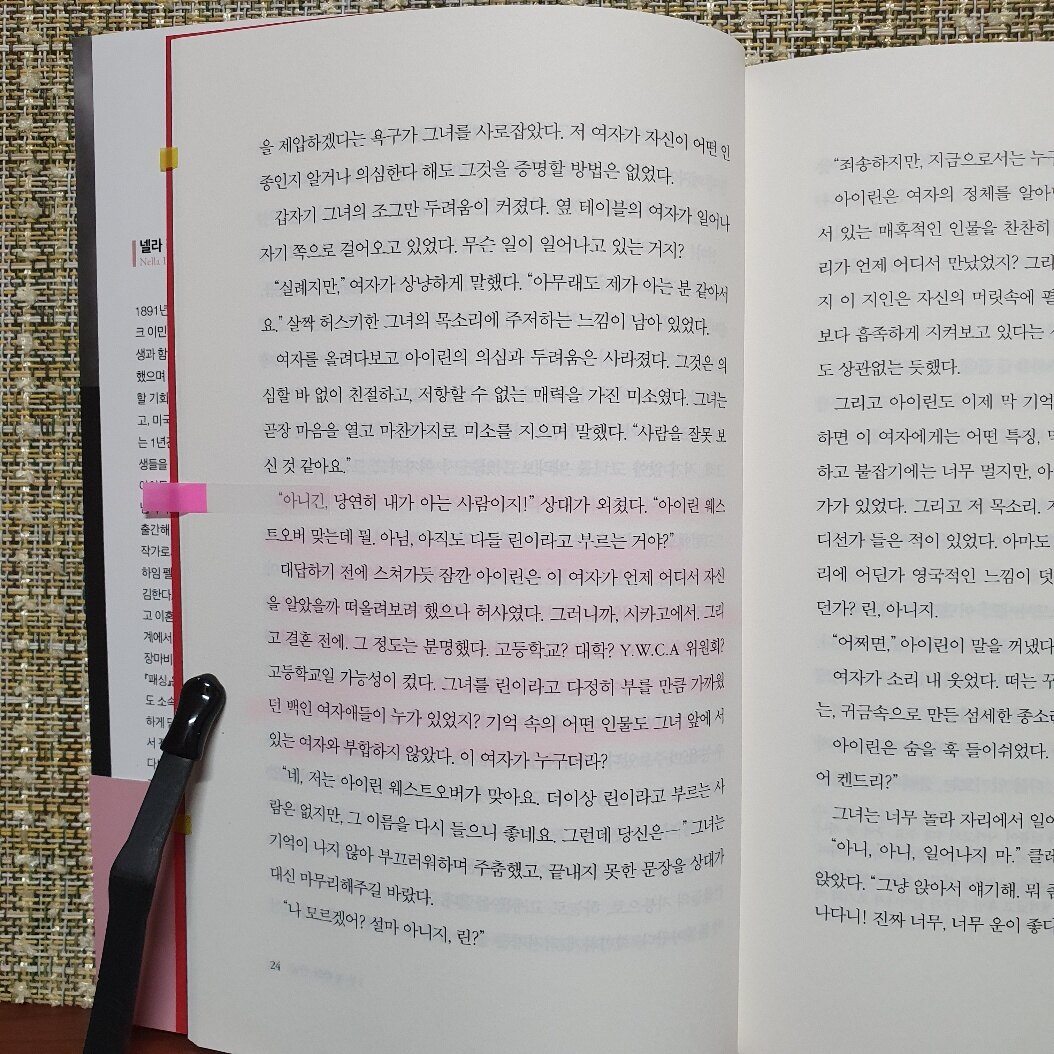 넬라
Nella
1891년
크 이민
생과 함
했으며
할 기회
고, 미국
는 1년간
생들을
출간해
작가로
하임 펠
김한다
고 이혼
계에서
장마비
『패싱』
도 소속
하게 된
서 
다
을 제압하겠다는 욕구가 그녀를 사로잡았다. 저 여자가 자신이 어떤 인
종인지 알거나 의심한다 해도 그것을 증명할 방법은 없었다.
갑자기 그녀의 조그만 두려움이 커졌다. 옆 테이블의 여자가 일어나
자기 쪽으로 걸어오고 있었다. 무슨 일이 일어나고 있는 거지?
“실례지만,” 여자가 상냥하게 말했다. “아무래도 제가 아는 분 같아서
요.” 살짝 허스키한 그녀의 목소리에 주저하는 느낌이 남아 있었다.
여자를 올려다보고 아이린의 의심과 두려움은 사라졌다. 그것은 의
심할 바 없이 친절하고, 저항할 수 없는 매력을 가진 미소였다. 그녀는
곧장 마음을 열고 마찬가지로 미소를 지으며 말했다. “사람을 잘못 보
신 것 같아요.”
“아니긴, 당연히 내가 아는 사람이지!” 상대가 외쳤다. “아이린 웨스
트오버 맞는데 뭘. 아님, 아직도 다들 린이라고 부르는 거야?”
대답하기 전에 스쳐가듯 잠깐 아이린은 이 여자가 언제 어디서 자신
을 알았을까 떠올려보려 했으나 허사였다. 그러니까, 시카고에서. 그리
고 결혼 전에. 그 정도는 분명했다. 고등학교? 대학? Y.W.C.A 위원회?
고등학교일 가능성이 컸다. 그녀를 린이라고 다정히 부를 만큼 가까웠
던 백인 여자애들이 누가 있었지? 기억 속의 어떤 인물도 그녀 앞에 서
있는 여자와 부합하지 않았다. 이 여자가 누구더라?
“네, 저는 아이린 웨스트오버가 맞아요. 더이상 린이라고 부르는 사
람은 없지만, 그 이름을 다시 들으니 좋네요. 그런데 당신은—” 그녀는
기억이 나지 않아 부끄러워하며 주춤했고, 끝내지 못한 문장을 상대가
대신 마무리해주길 바랐다.
“나 모르겠어? 설마 아니지, 린?”
24
“죄송하지만, 지금으로서는 누구
아이린은 여자의 정체를 알아
서 있는 매혹적인 인물을 찬찬히
리가 언제 어디서 만났었지? 그리
지 이 지인은 자신의 머릿속에 펼
보다 흡족하게 지켜보고 있다는
도 상관없는 듯했다.
그리고 아이린도 이제 막 기억
하면 이 여자에게는 어떤 특징,
하고 붙잡기에는 너무 멀지만, 아
가가 있었다. 그리고 저 목소리.
디선가 들은 적이 있었다. 아마도
리에 어딘가 영국적인 느낌이 덧
던가? 린, 아니지.
“어쩌면,” 아이린이 말을 꺼냈다
여자가 소리 내 웃었다. 떠는
는, 귀금속으로 만든 섬세한 종소리
아이린은 숨을 훅 들이쉬었다.
어 켄드리?”
그녀는 너무 놀라 자리에서 일어
“아니, 아니, 일어나지 마.” 클레
앉았다. “그냥 앉아서 얘기해. 뭐
나다니! 진짜 너무, 너무 운이 좋다